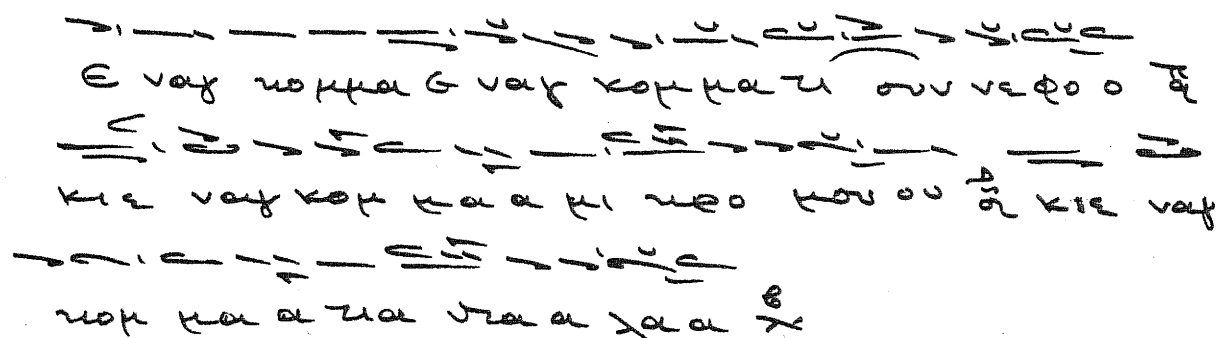 Ε ναγ κομμα Ε ναγ κομ μα τι συν νεφο ο
κιε ναγ κομ μα α μι κρο μου ου κιε ναγ
κομ μα α τια ντα α λα α